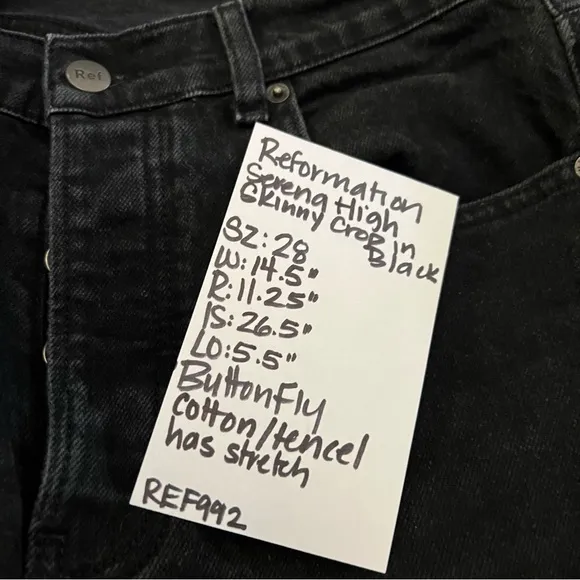 Ref
Reformation
Sereng High
Skinny Crop in
Black
SZ: 28
W: 14.5"
R: 11.25"
IS: 26.5"
LO: 5.5"
Button Fly
cotton/tencel
has stretch
REF992